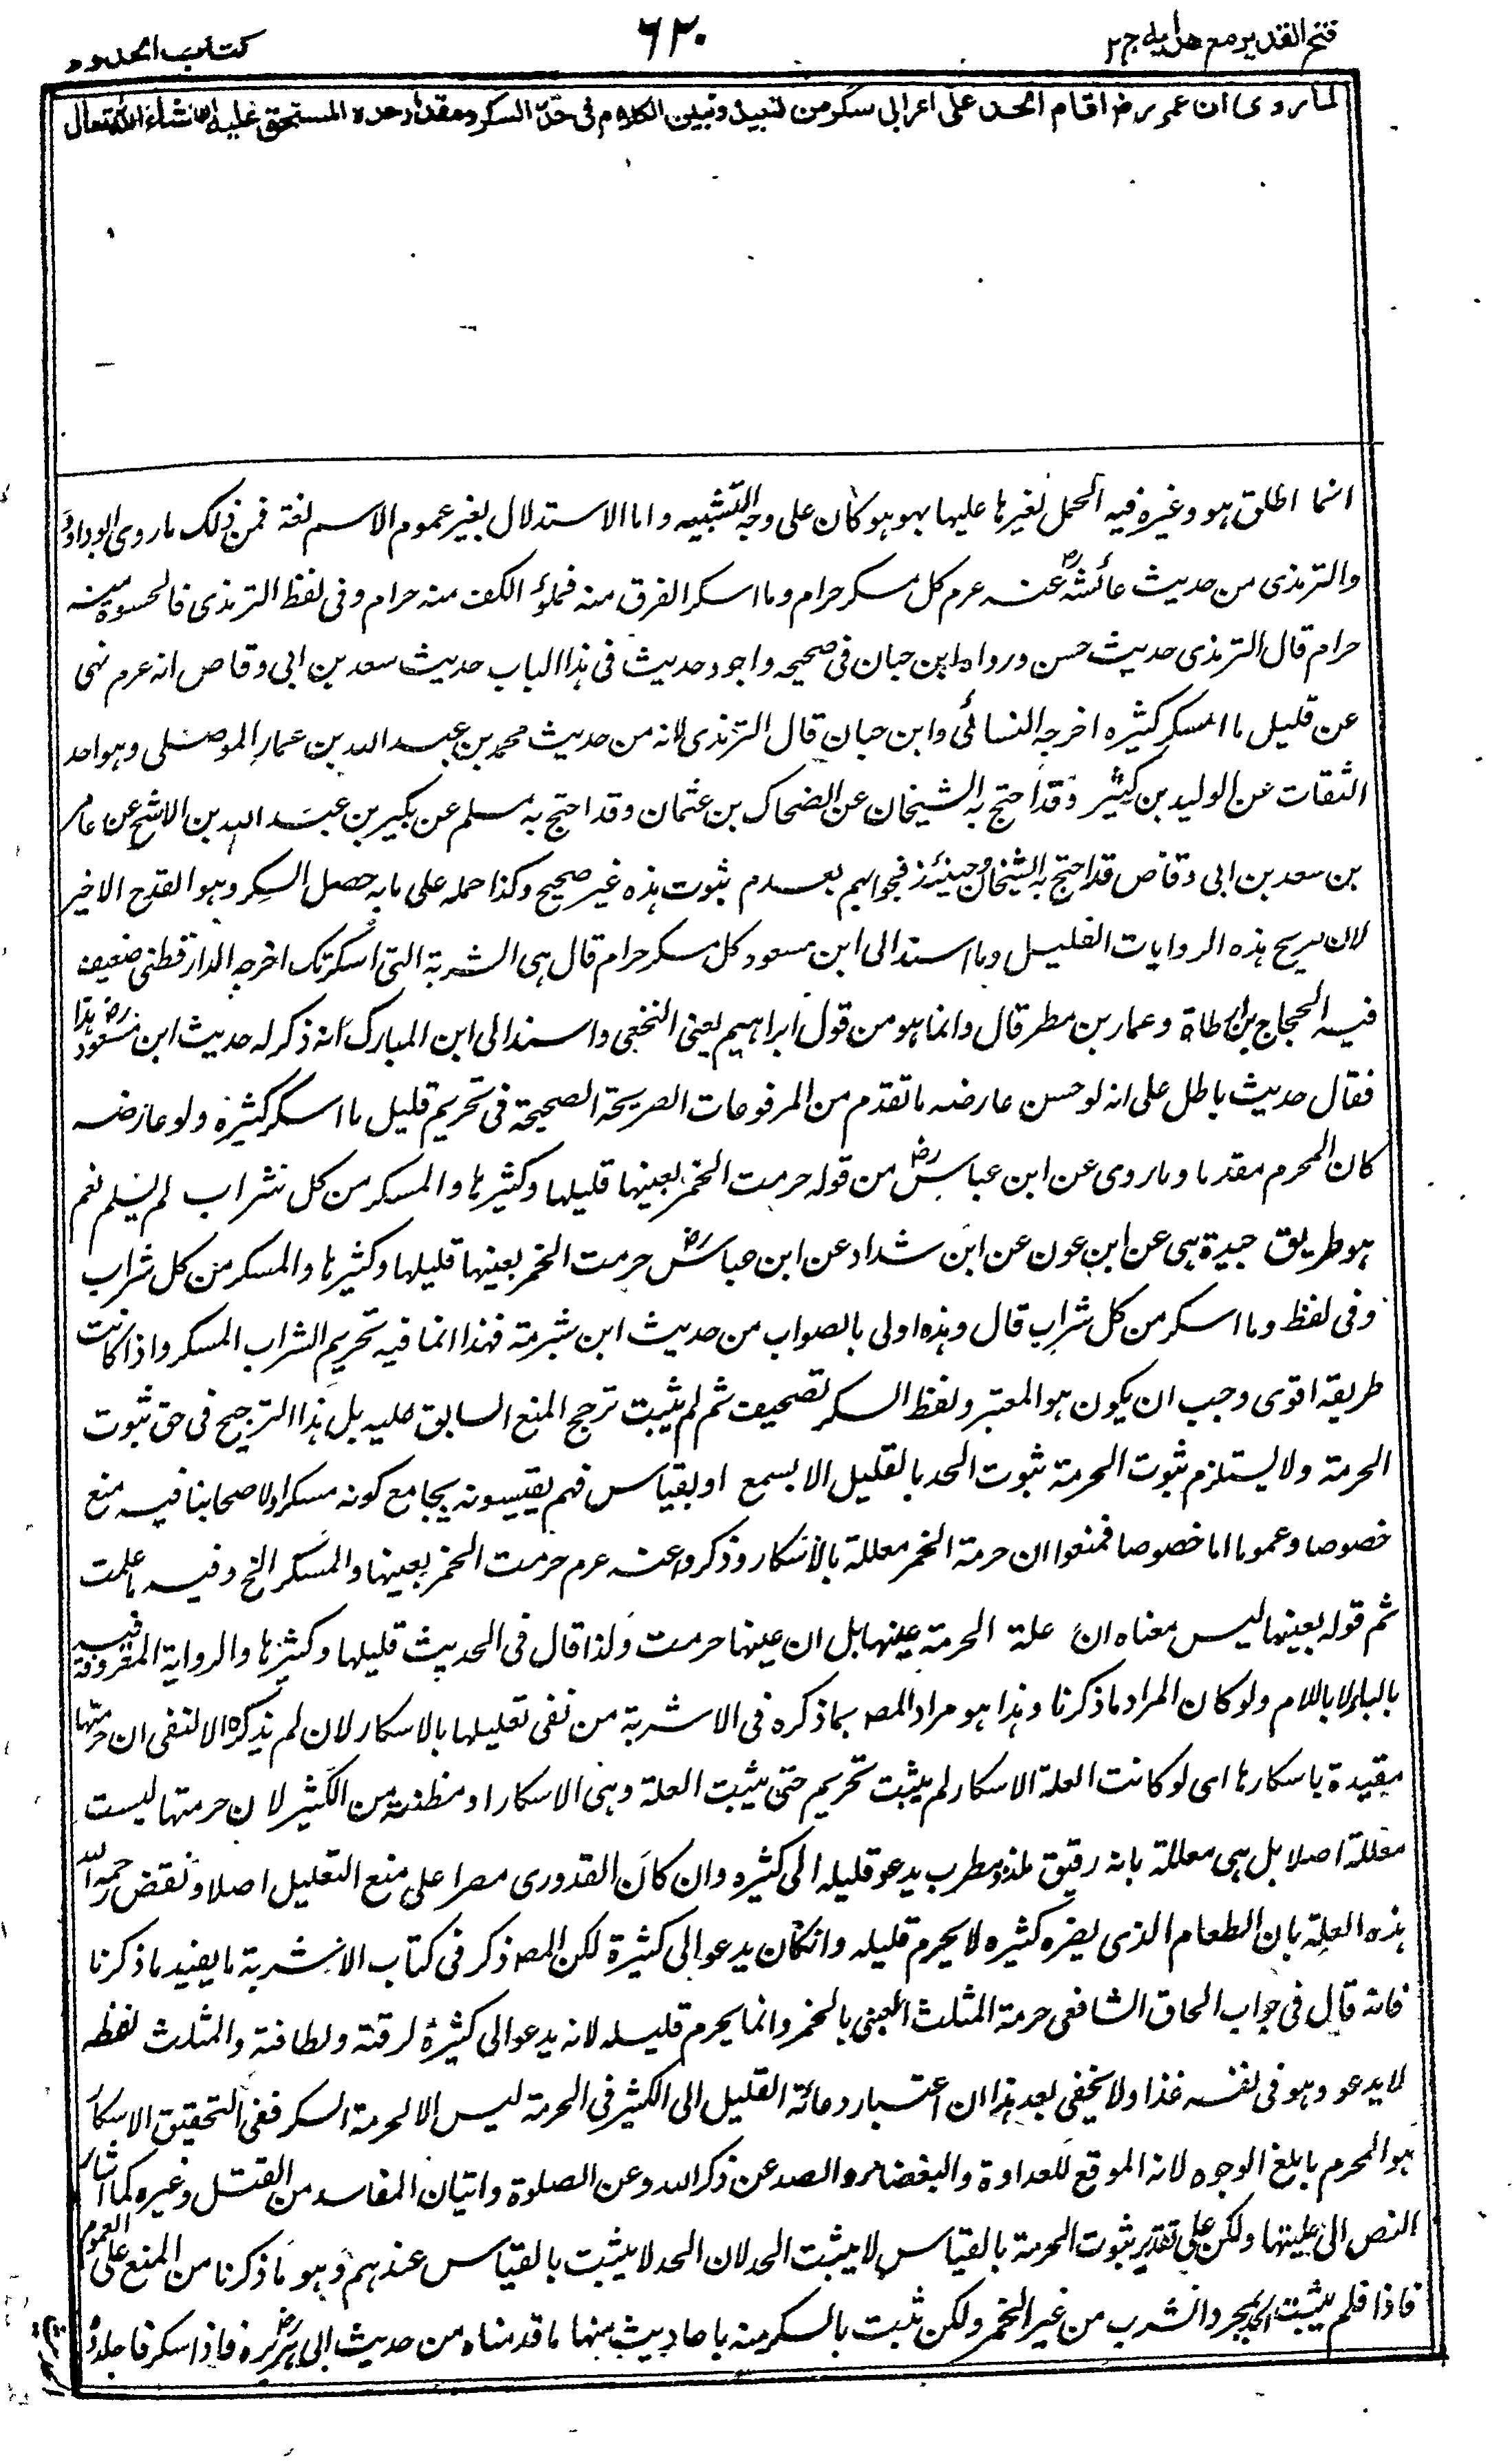 فتح القدير مع هدايه ج٢
٦٢٠
كتاب الحدود
لما روى ان عمر رض اقام الحد على اعرابى سكر من النبيذ ونبين الكلام فى حد السكر ومقدار حده المستحق عليه ان شاء الله تعالى
انما اطلق هو وغيره فيه الحمل لغيرها عليها بهو هو كان على وجه التشبيه واما الاستدلال بغير عموم الاسم لغة فمن ذلك ما روى ابو داود
والترمذى من حديث عائشة رض عنه عرم كل مسكر حرام وما اسكر الفرق منه فملؤ الكف منه حرام وفى لفظ الترمذى فالحسوة منه
حرام قال الترمذى حديث حسن ورواه ابن حبان فى صحيحه واجود حديث فى هذا الباب حديث سعد بن ابى وقاص انه عرم نهى
عن قليل ما اسكر كثيره اخرجه النسائى وابن حبان قال الترمذى لانه من حديث محمد بن عبد الله بن عمار الموصلى وهو احد
الثقات عن الوليد بن كثير وقد احتج به الشيخان عن الضحاك بن عثمان وقد احتج به مسلم عن بكير بن عبد الله بن الاشج عن عامر
بن سعد بن ابى وقاص قد احتج به الشيخان وحينئذ فجوابهم بعدم ثبوت هذه غير صحيح وكذا حمله على ما به حصل السكر وهو القدح الاخير
لان صريح هذه الروايات القليل وما اسند الى ابن مسعود كل مسكر حرام قال هى الشربة التى اسكرتك اخرجه الدارقطنى ضعيف
فيه الحجاج بن ارطاة وعمار بن مطر قال وانما هو من قول ابراهيم يعنى النخعى واسند الى ابن المبارك انه ذكر له حديث ابن مسعود رض هذا
فقال حديث باطل على انه لو حسن عارضه ما تقدم من المرفوعات الصريحة الصحيحة فى تحريم قليل ما اسكر كثيره ولو عارضه
كان المحرم مقدما وما روى عن ابن عباس رض من قوله حرمت الخمر بعينها قليلها وكثيرها والمسكر من كل شراب لم يسلم نعم
هو طريق جيدة هى عن ابن عون عن ابن شداد عن ابن عباس رض حرمت الخمر بعينها قليلها وكثيرها والمسكر من كل شراب
وفى لفظ وما اسكر من كل شراب قال وهذه اولى بالصواب من حديث ابن شبرمة فهذا انما فيه تحريم الشراب المسكر واذا كانت
طريقه اقوى وجب ان يكون هو المعتبر ولفظ السكر تصحيف ثم لم يثبت ترجح المنع السابق عليه بل هذا الترجيح فى حق ثبوت
الحرمة ولا يستلزم ثبوت الحرمة ثبوت الحد بالقليل الا بسمع او بقياس فهم يقيسونه بجامع كونه مسكرا ولاصحابنا فيه منع
خصوصا وعموما اما خصوصا فمنعوا ان حرمة الخمر معللة بالاسكار وذكروا عنه عرم حرمت الخمر بعينها والمسكر الخ وفيه ما علمت
ثم قوله بعينها ليس معناه ان علة الحرمة عينها بل ان عينها حرمت ولذا قال فى الحديث قليلها وكثيرها والرواية المعروفة فيه
بالباء لا باللام ولو كان المراد ما ذكرنا وهذا هو مراد المص بما ذكره فى الاشربة من نفى تعليلها بالاسكار لانه لم يذكره الا لنفى ان حرمتها
مقيدة باسكارها اى لو كانت العلة الاسكار لم يثبت تحريم حتى يثبت العلة وهى الاسكار او مظنته من الكثير لا ان حرمتها ليست
معللة اصلا بل هى معللة بانه رقيق ملذ مطرب يدعو قليله الى كثيره وان كان القدورى مصرا على منع التعليل اصلا ونقض رحمه الله
هذه العلة بان الطعام الذى يضره كثيره لا يحرم قليله وانكان يدعو الى كثيره لكن المص ذكر فى كتاب الاشربة ما يفيد ما ذكرنا
فانه قال فى جواب الحاق الشافعى حرمة المثلث العنبى بالخمر وانما يحرم قليله لانه يدعو الى كثيره لرقته ولطافته والمثلث لغلظه
لا يدعو وهو فى نفسه غذا ولا يخفى بعد هذا ان اعتبار دعائه القليل الى الكثير فى الحرمة ليس الا لحرمة السكر ففى التحقيق الاسكار
هو المحرم بابلغ الوجوه لانه الموقع للعداوة والبغضاء والصد عن ذكر الله وعن الصلوة واتيان المفاسد من القتل وغيره كما اشار
النص الى عليتها ولكن على تقدير ثبوت الحرمة بالقياس لا يثبت الحد لان الحد لا يثبت بالقياس عندهم وهو ما ذكرنا من المنع على العموم
فاذا فلم يثبت الحد بمجرد الشرب من غير الخمر ولكن ثبت بالسكر منه باحاديث منها ما قدمناه من حديث ابى هريرة رض فاذا سكر فاجلدوه